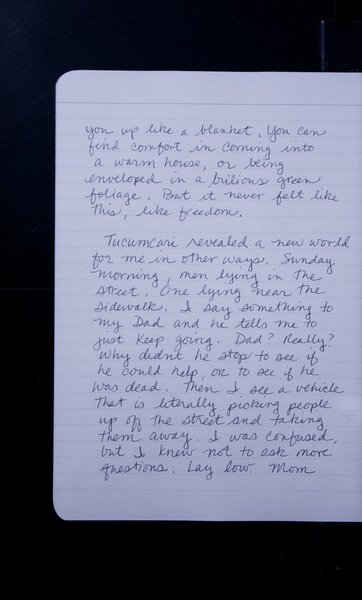 you up like a blanket. You can
find comfort in coming into
a warm house, or being
enveloped in a bilious green
foliage. But it never felt like
this, like freedom.
Tucumcari revealed a new world
for me in other ways. Sunday
morning, men lying in the
street. One lying near the
sidewalk. I say something to
my Dad and he tells me to
just keep going. Dad? Really?
Why didn't he stop to see if
he could help, or to see if he
was dead. Then I see a vehicle
that is literally picking people
up off the street and taking
them away. I was confused,
but I knew not to ask more
questions. Lay low. Mom